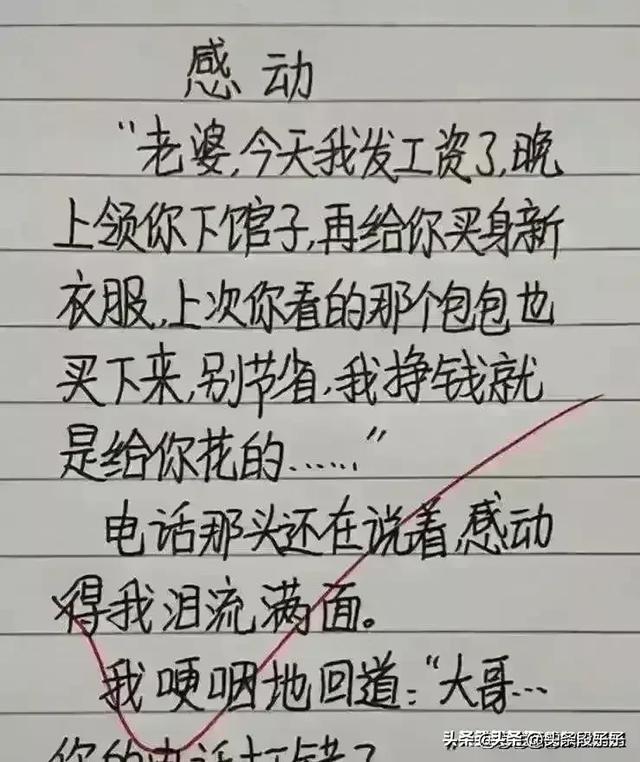 感动
“老婆,今天我发工资了,晚
上领你下馆子,再给你买身新
衣服,上次你看的那个包包也
买下来,别节省,我挣钱就
是给你花的……”
电话那头还在说着,感动
得我泪流满面。
我哽咽地回道:“大哥…
你的电话打错了
头条